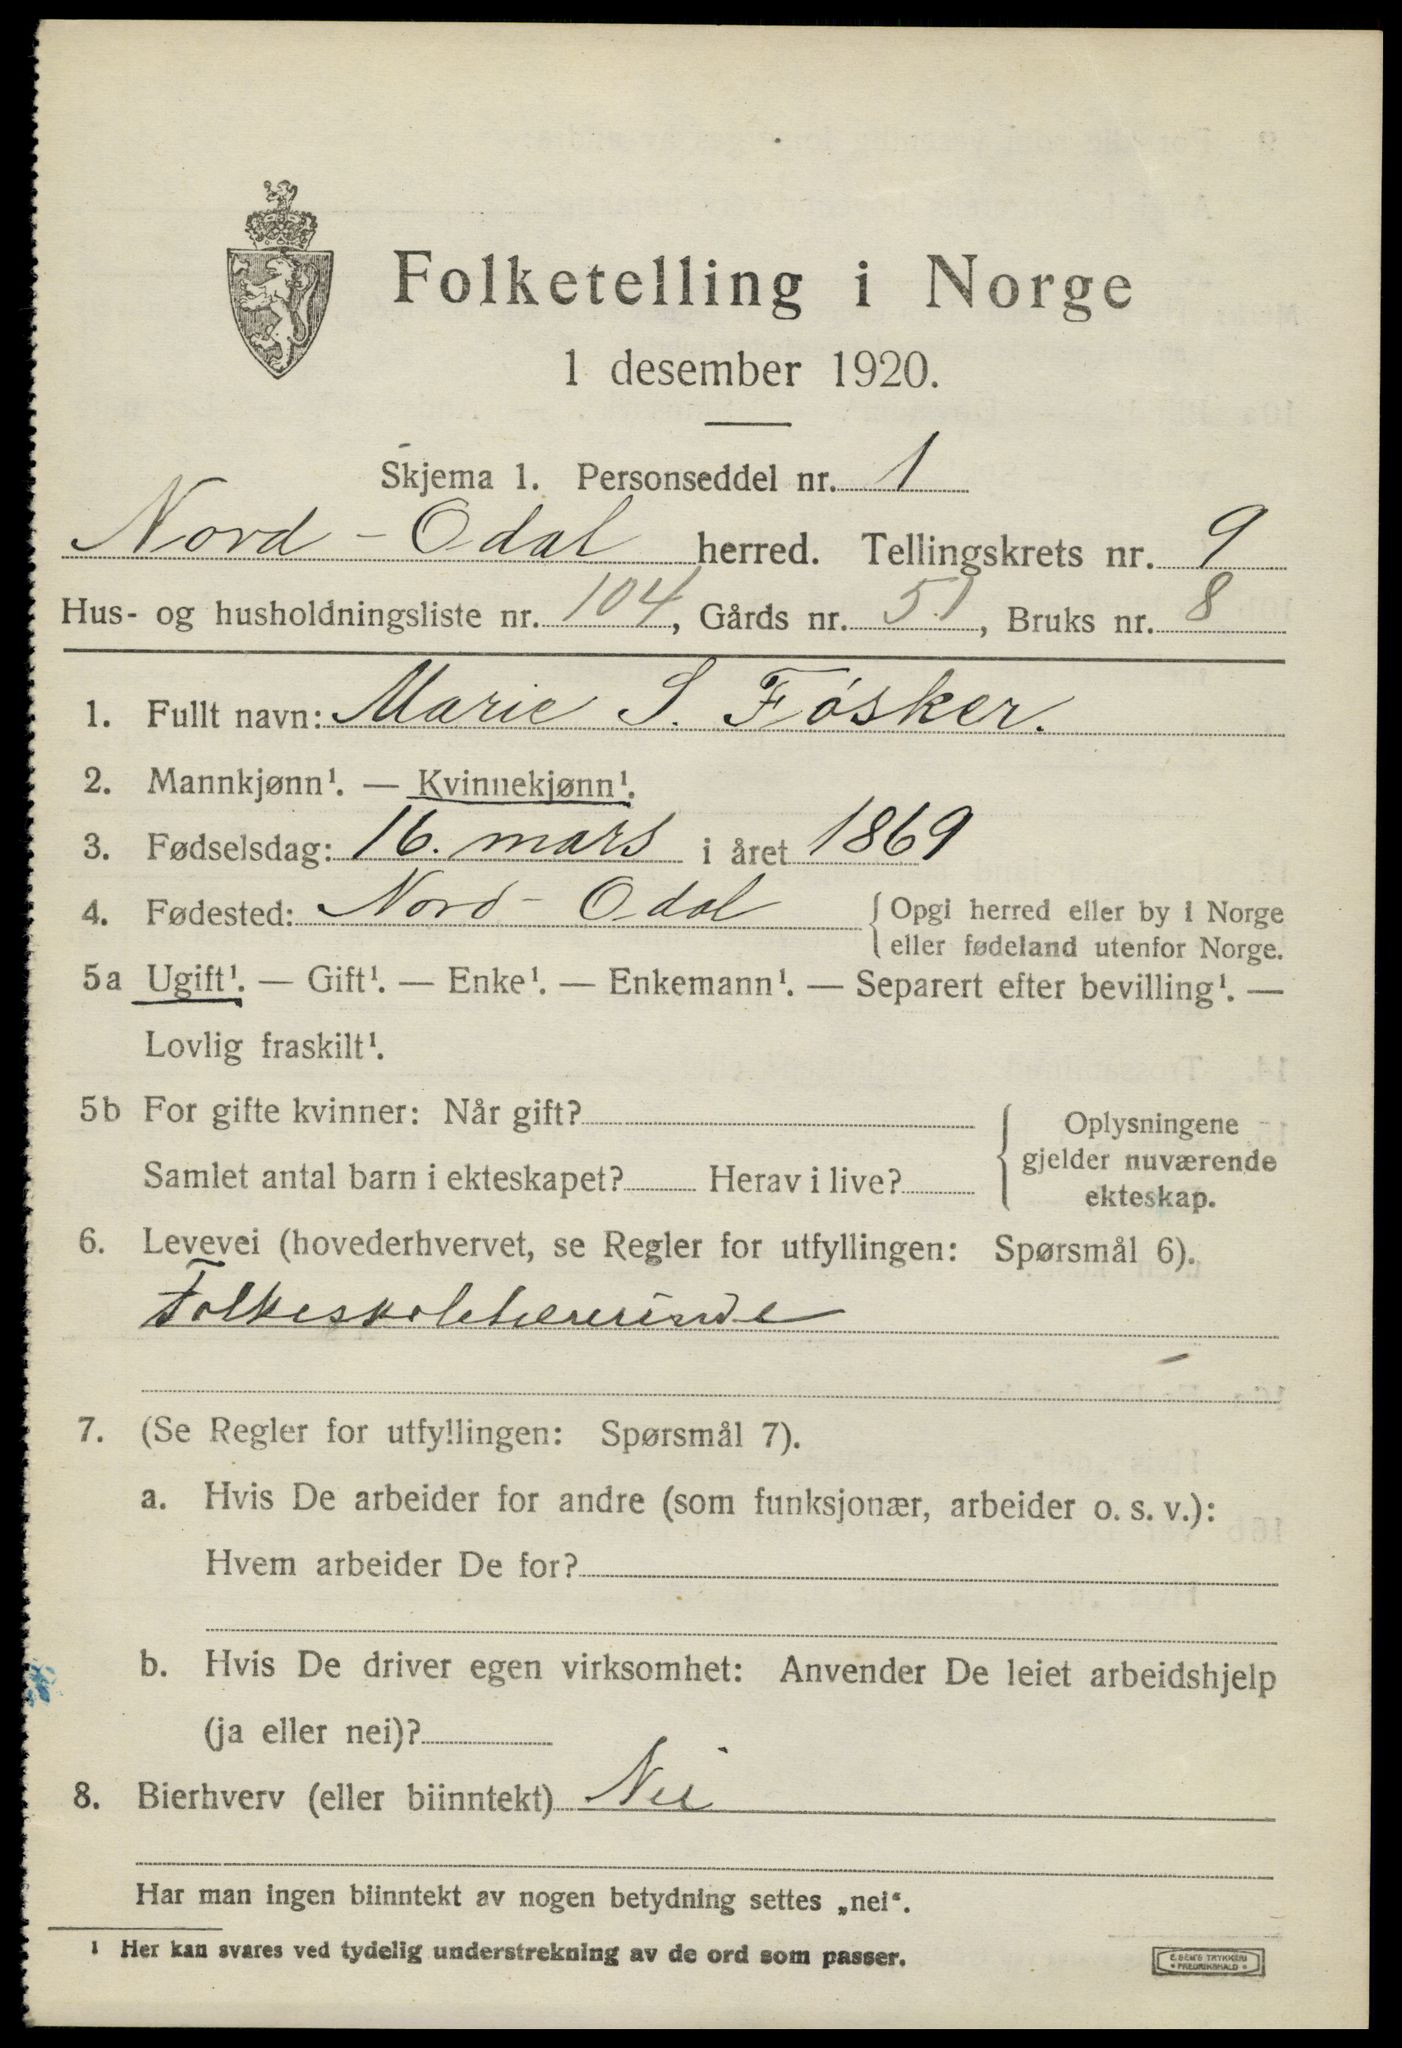 Folketelling i Norge
1 desember 1920.
Skjema 1. Personseddel nr. 1
Nord-Odal herred. Tellingskrets nr. 9
Hus- og husholdningsliste nr. 104, Gårds nr. 51, Bruks nr. 8
1. Fullt navn: Marie S. Fósker.
2. Mannkjønn¹. — Kvinnekjønn¹.
3. Fødselsdag: 16. mars i året 1869
4. Fødested: Nord-Odal { Opgi herred eller by i Norge
eller fødeland utenfor Norge.
5a Ugift¹. — Gift¹. — Enke¹. — Enkemann¹. — Separert efter bevilling¹. —
Lovlig fraskilt¹.
5b For gifte kvinner: Når gift? { Oplysningene
gjelder nuværende
Samlet antal barn i ekteskapet? Herav i live?
ekteskap.
6. Levevei (hovederhvervet, se Regler for utfyllingen: Spørsmål 6).
Folkeskolelærerinde
7. (Se Regler for utfyllingen: Spørsmål 7).
a. Hvis De arbeider for andre (som funksjonær, arbeider o. s. v.):
Hvem arbeider De for?
b. Hvis De driver egen virksomhet: Anvender De leiet arbeidshjelp
(ja eller nei)?
8. Bierhverv (eller biinntekt) Nei
Har man ingen biinntekt av nogen betydning settes „nei“.
¹ Her kan svares ved tydelig understrekning av de ord som passer.
E. SEM'S TRYKKERI
• FREDRIKSHALD •